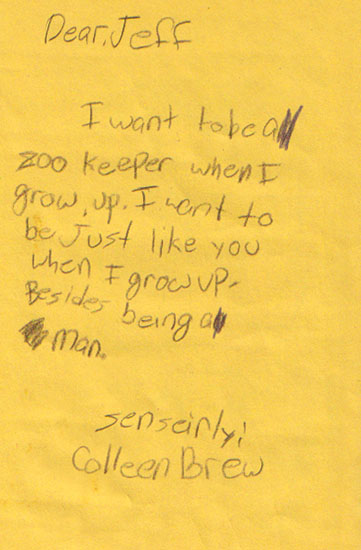 Dear, Jeff
I want to be a
zoo keeper when I
grow, up. I want to
be Just like you
when I grow up.
Besides being a
Man.
senseirly;
Colleen Brew